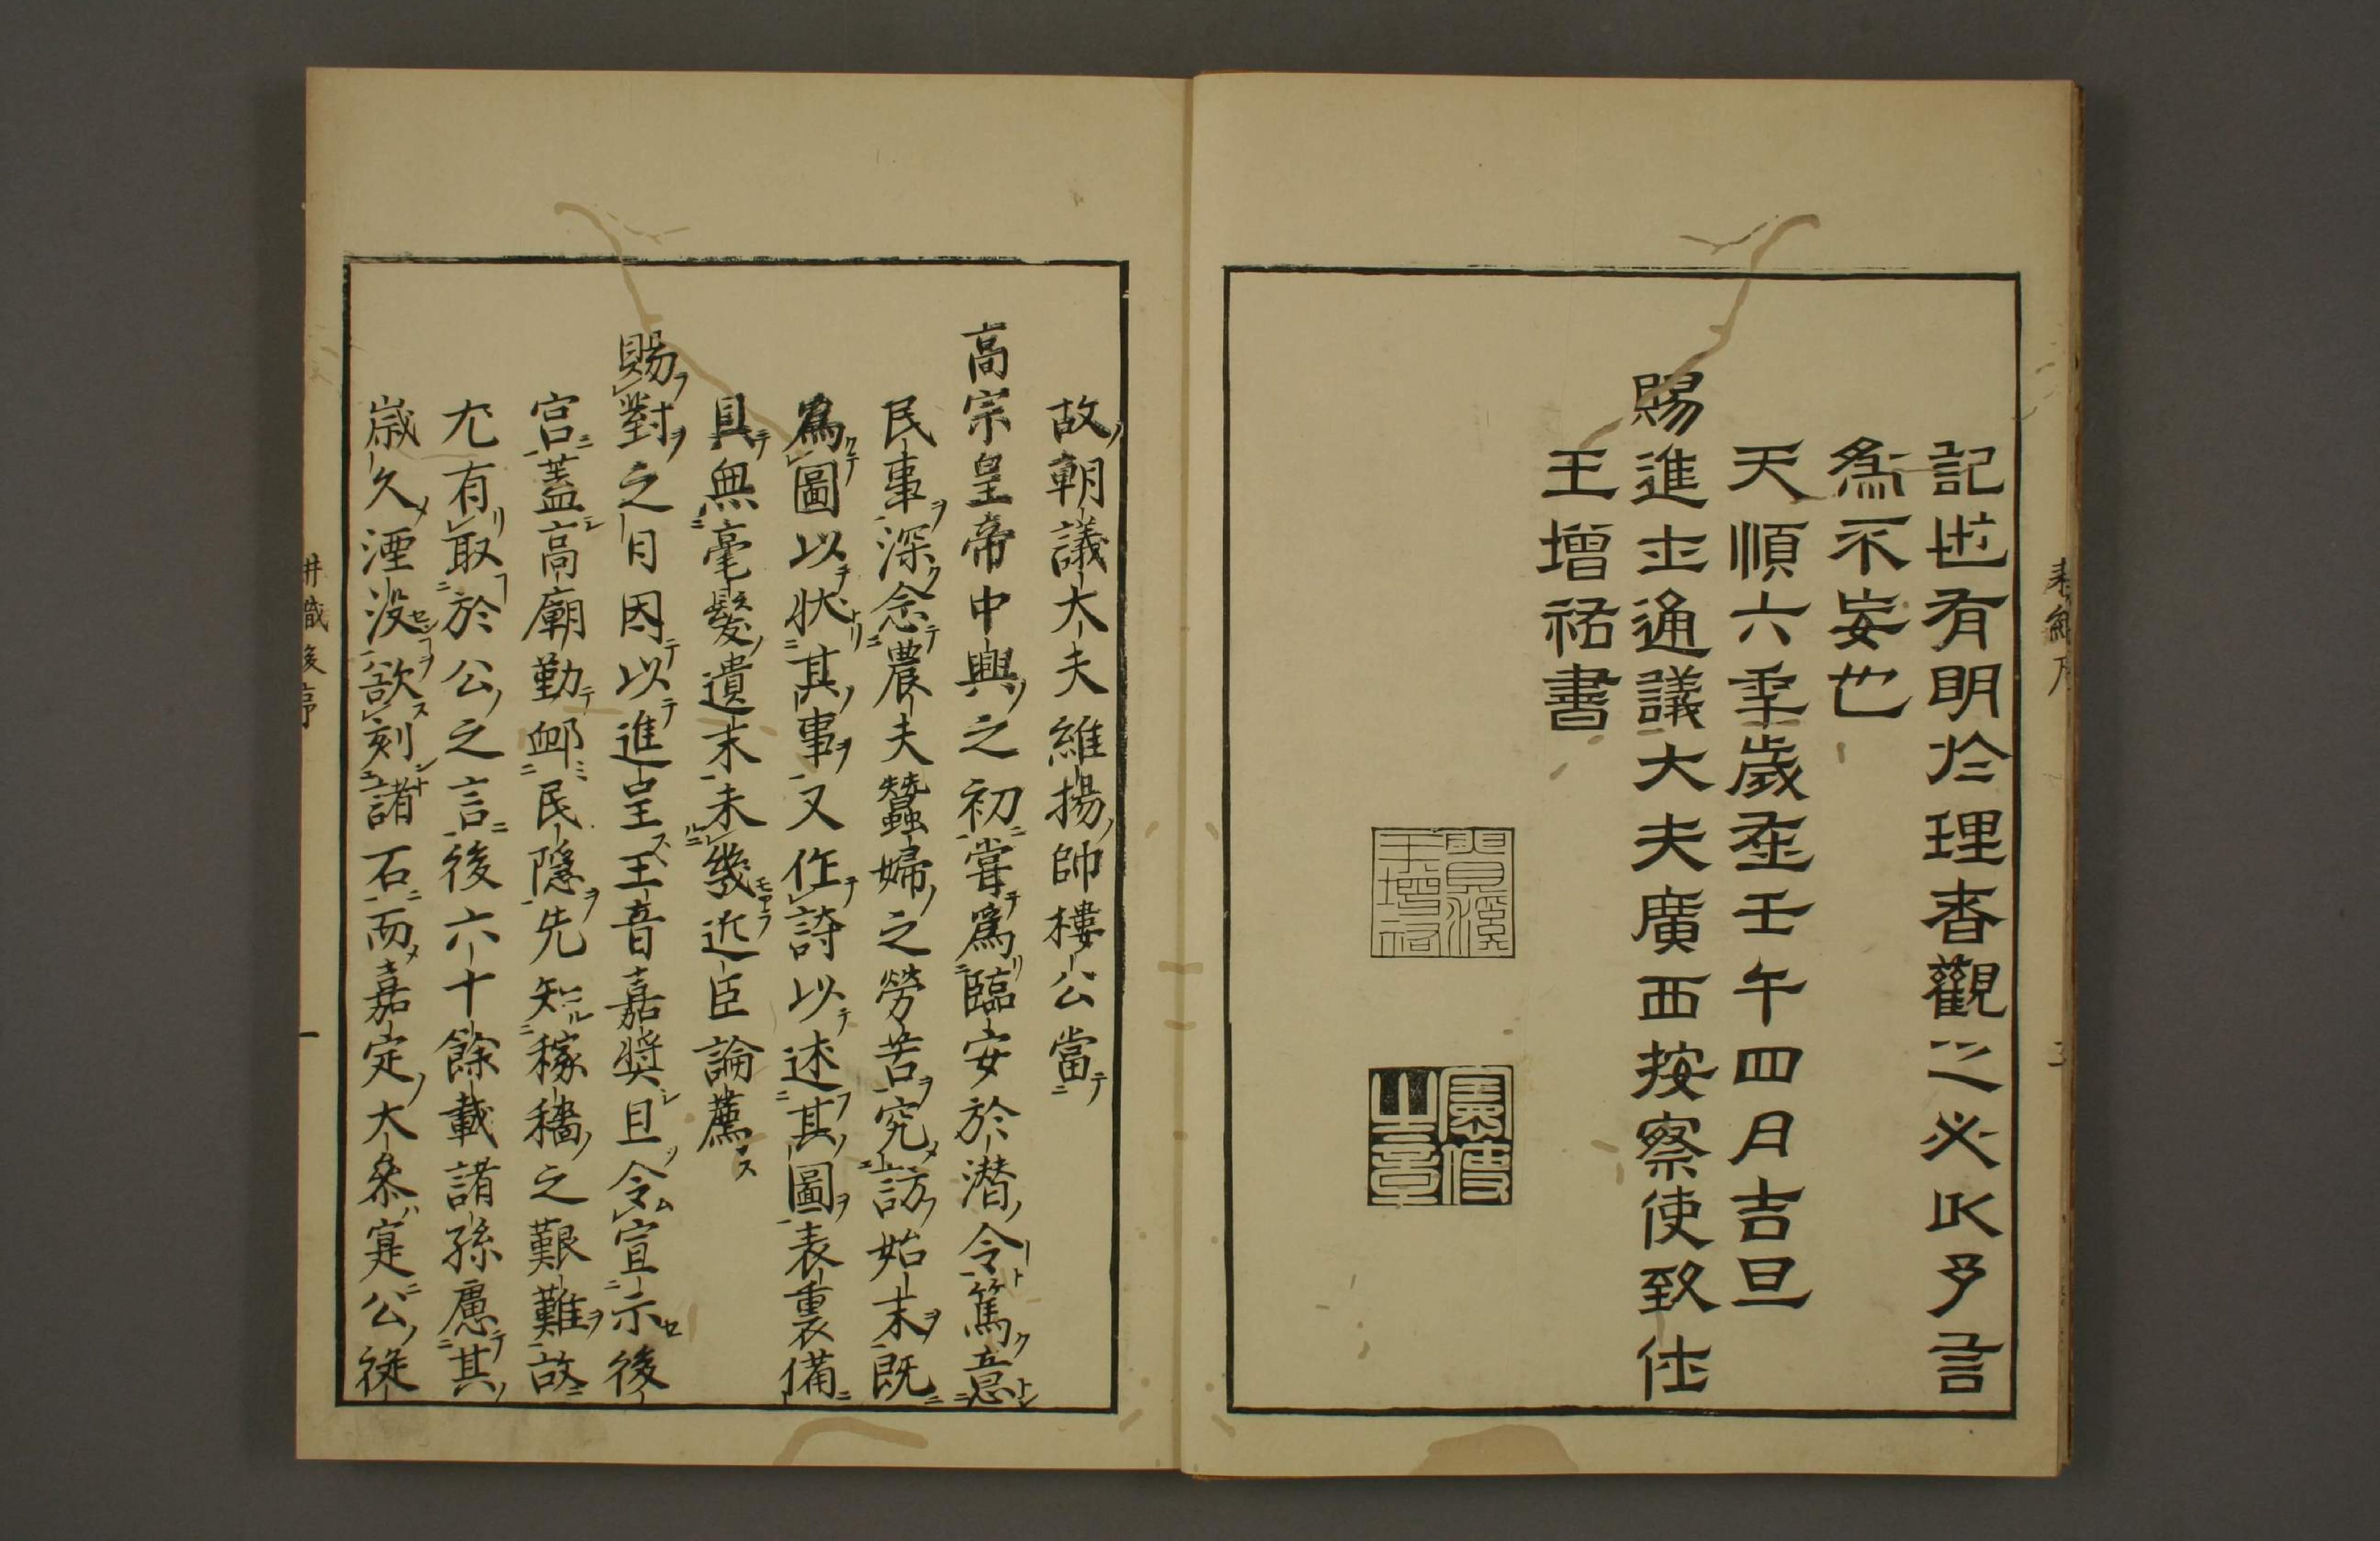 記世有明於理者觀之必以多言
為不妄也
天順六年歲在壬午四月吉旦
賜進士通議大夫廣西按察使致仕
王增祐書
王增祐
之章
故朝議大夫維揚帥樓公當
高宗皇帝中興之初嘗爲臨安於潛令篤意
民事深念農夫蠶婦之勞苦究訪始末既
爲圖以狀其事又作詩以述其圖表裏備
具無毫髮遺末未幾近臣論薦
賜對之日因以進呈王音嘉奬且令宣示後
宮蓋高廟勤邮民隱先知稼穡之艱難故
尤有取於公之言後六十餘載諸孫慮其
歳久湮没欲刻諸石而嘉定大參寔公從
耕織後序
一